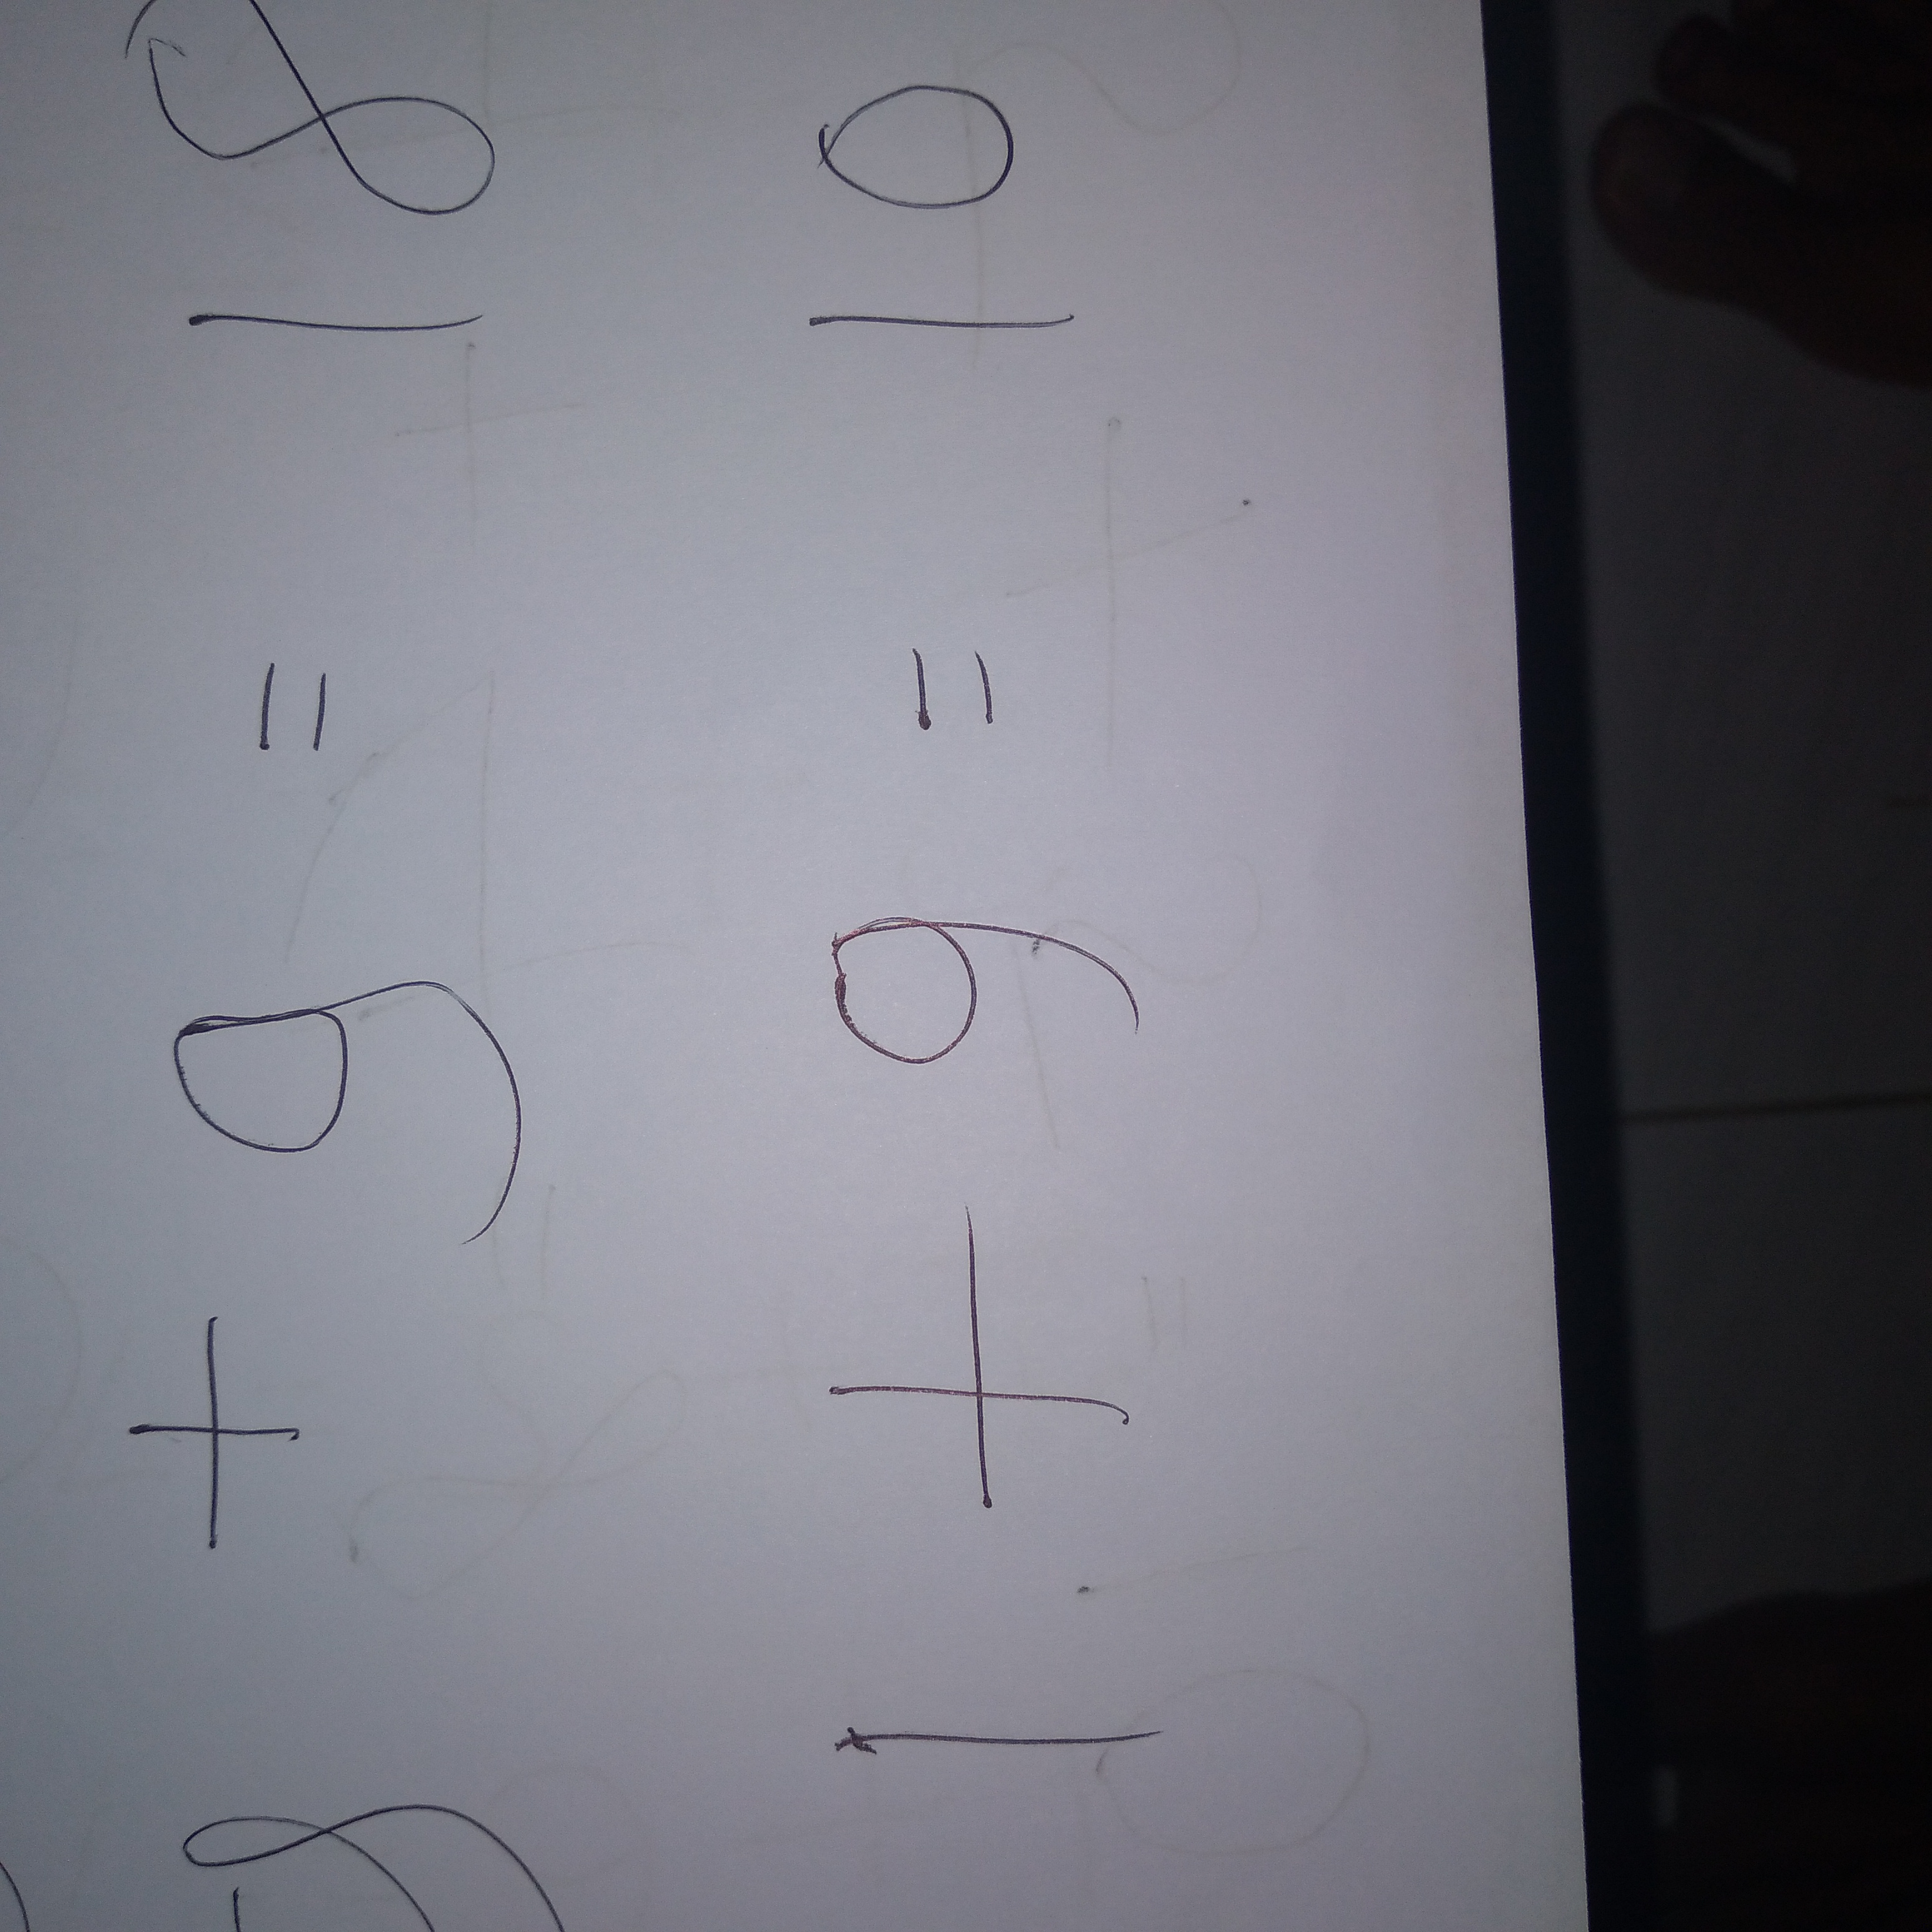 + 9 = 18
1 + 9 = 10